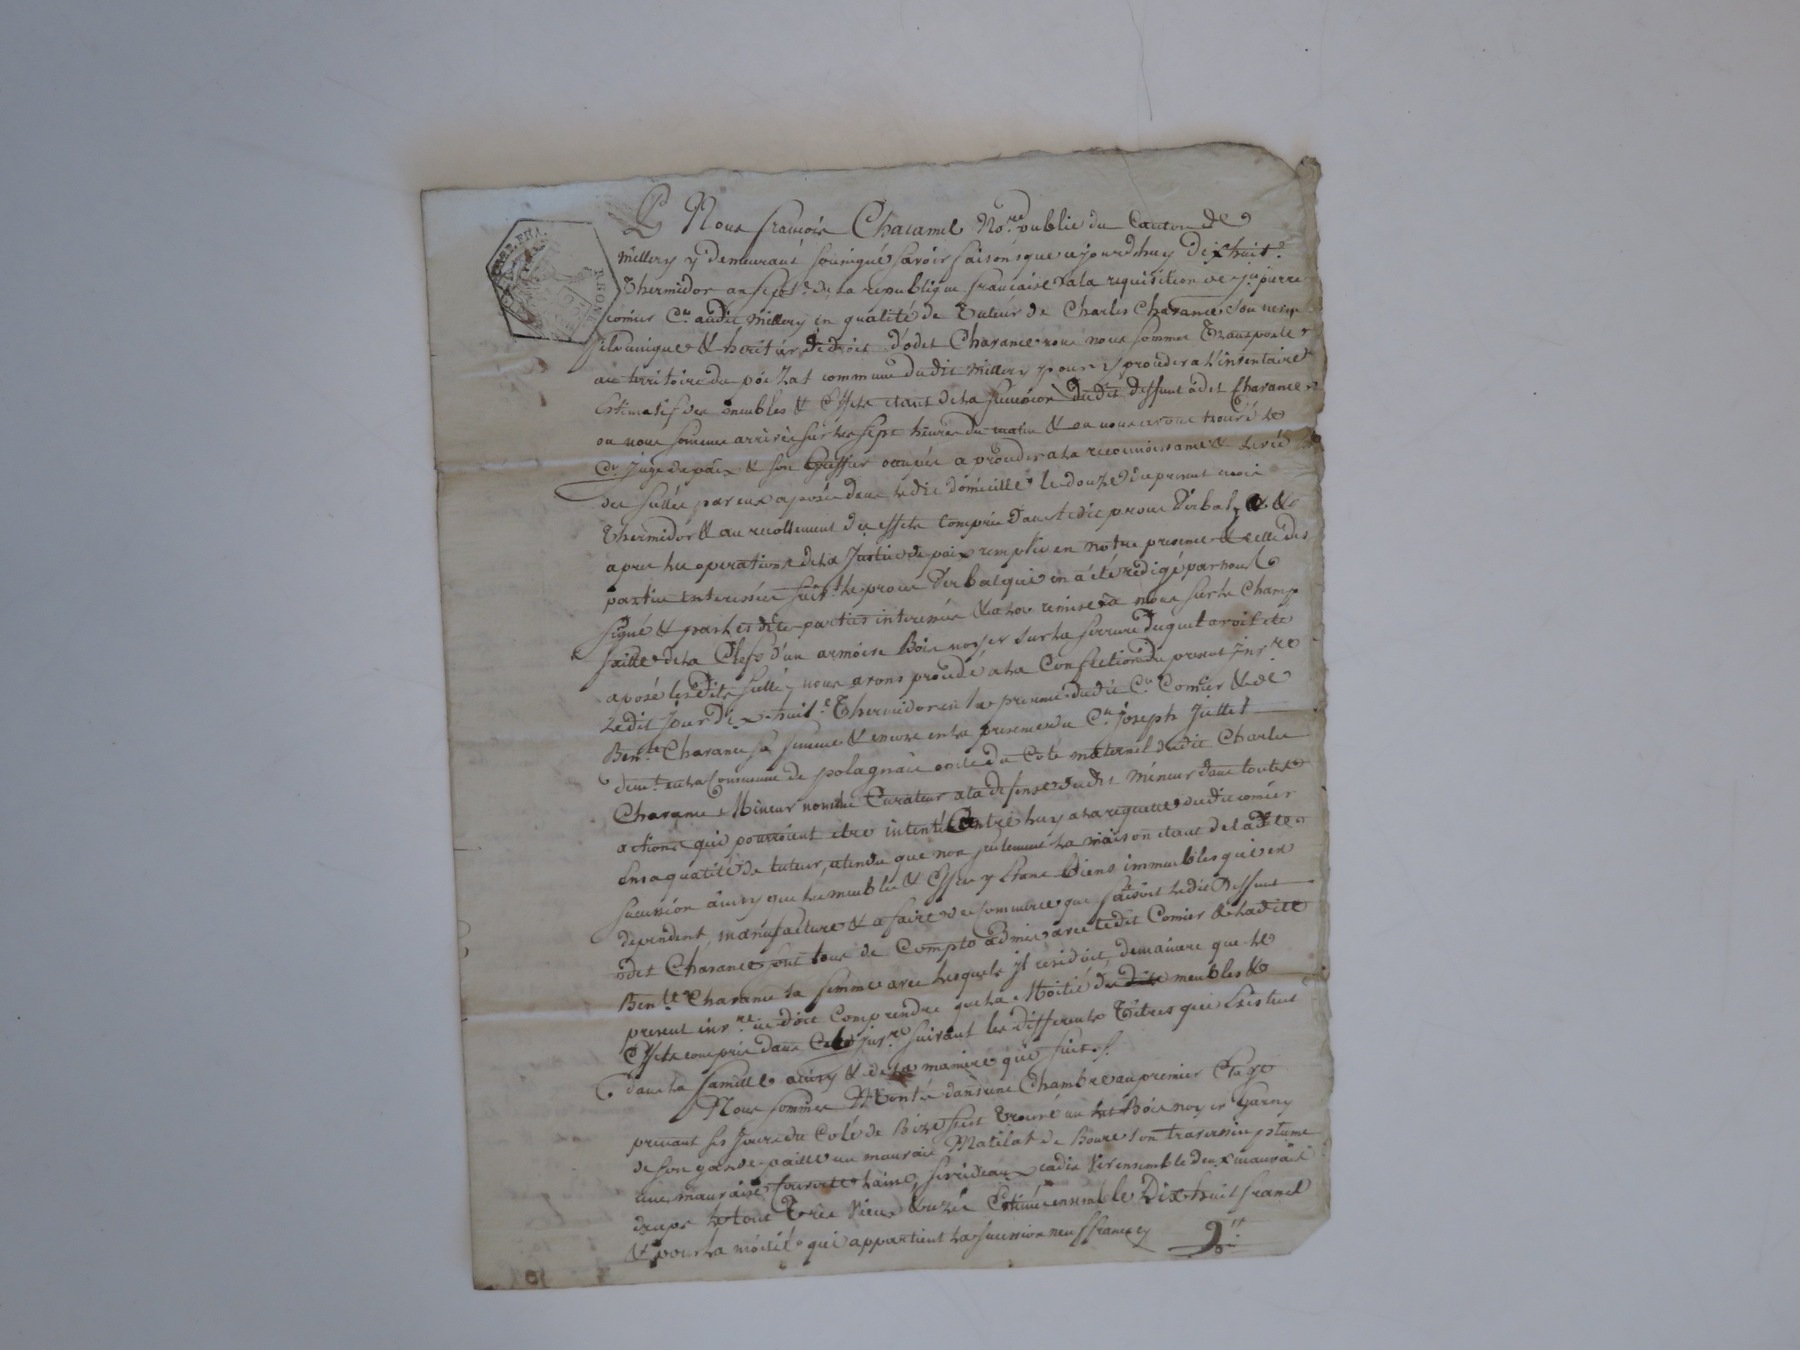 RHONE
Nous francois Charamel No.re public du Canton de
Millery y demeurant sousigné savoir faisons que cejourdhuy dix huit.
Thermidor an sept.e de la republique francaise a la requisition de pierre
comier C.en audit Millery en qualité de Tuteur de Charles Charance son neveu
fils unique & héritier de droit d'odet Charance nous nous sommes Transporté
au territoire du poizat commune dudit Millery pour y proceder a L'inventaire
Estimatif des meubles & Effets etant de la succession dudit deffunt odet Charance
ou nous sommes arrivés sur les sept heures du matin & ou nous avons trouvé le
C.en Juge de paix & son greffier occupés a proceder a la reconnoissance & levée
des sellés par eux aposés dans ledit domicille le douze du present mois
Thermidor & au recollement des effets compris dans ledit procés verbal, & &
apres les operations de la Justice de paix remplies en notre presence & celle des
parties interessées suiv.t le procés verbal qui en a été rédigé par nous
signé & par lesdites parties interessées & a la remise a nous sur le champ
faitte de la Clefs d'un armoire Bois noyer sur la serrure duquel avoit ete
aposé lesdits sellés, nous avons procedé a la Confection du present inv.re
ledit jour dix huit.e Thermidor en la presence dudit C.en Comier & de
Ben.te Charance sa femme & encore en la presence du C.en joseph Juttet
dem.t en la Commune de polagnais oncle du Coté maternel dudit Charles
Charance Mineur nommé Curateur a la defense dudit mineur dans toutes
actions qui pourroient etre intenté Contre luy a la requette dudit comier
en sa qualité de tuteur, atendu que non seulement la maison etant de la dite
succession ainsy que les meubles & Effets y etant Biens immeubles qui en
dependent, manufacture & afaires de commerce que faisoit ledit deffunt
odet Charance sont tous de Compte à demis avec ledit Comier & ladite
Ben.te Charance sa femme avec lesquels il residoit, demaniere que le
present inv.re ne doit Comprendre que la Moitié des dits meubles &
Effets compris dans Cet inv.re suivant les differents Titres qui Existent
dans la famille ainsy & de la maniere qui suit.
Nous sommes Monté dans une Chambre au premier Etage
prenant ses jours du Coté de Bize s'est trouvé un lit Bois noyer garny
de son garde-paille un mauvais Matelat de Boure son traversin plume
une mauvaise couverte laine, ses rideaux cadis vert ensemble deux mauvais
draps le tout très vieux & uzé Estimé ensemble Dix huit francs
& pour la moitié qui appartient la succession neuf francs cy 9"